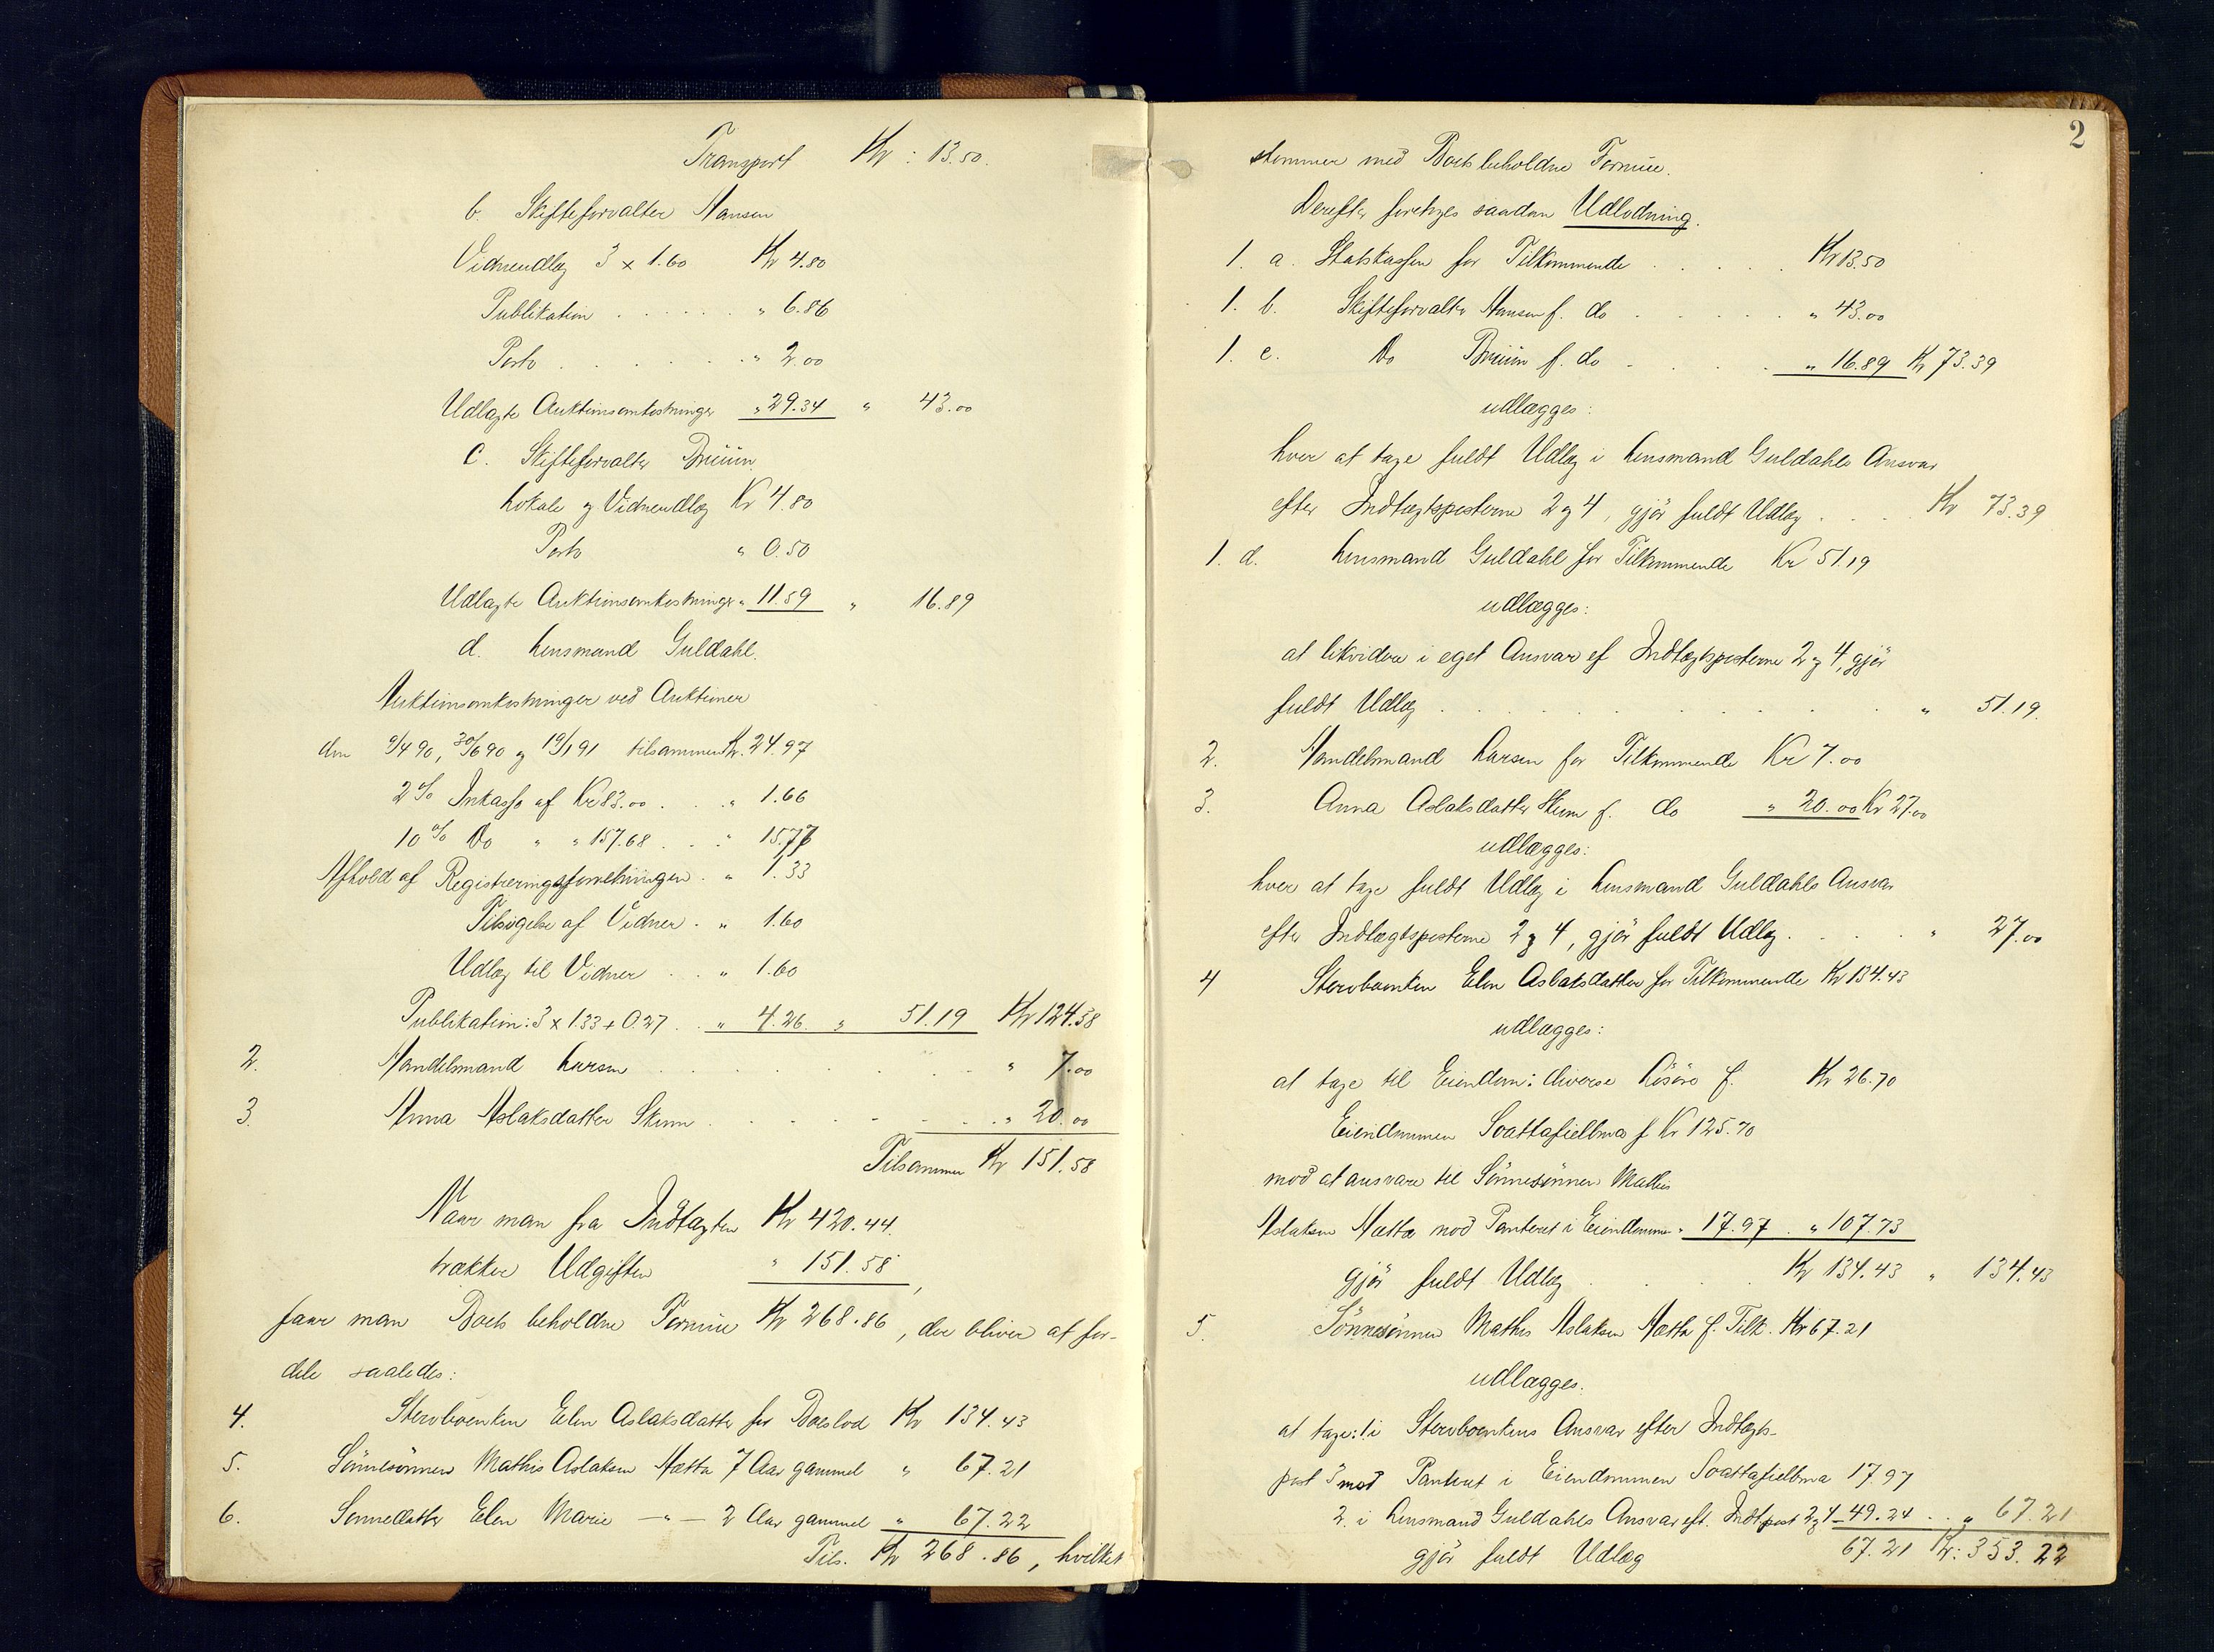 Transport Kr : 13.50.
b. Skifteforvalter Hansen
Vidneudlæg 3 x 1.60 Kr 4.80
Publikation . . . . . . " 6.86
Porto . . . . . . " 2.00
Udlagte Auktionsomkostninger " 29.34 " 43.00
C. Skifteforvalter Bruun
Lokale og Vidneudlæg Kr 4.80
Porto " 0.50
Udlagte Auktionsomkostninger " 11.59 " 16.89
d. Lensmand Guldahl.
Auktionsomkostninger ved Auktioner
den 9/4 90, 30/6 90 og 19/1 91 tilsammen Kr. 24.97
2 % Inkasso af Kr 83.00 . . " 1.66
10 % Do " " 157.68 . . " 15.77
Afhold af Registreringsforretningen . " 1.33
Tilsigelse af Vidner . " 1.60
Udlæg til Vidner . . " 1.60
Publikation: 3 x 1.33 + 0.27 . . " 4.26 " 51.19 Kr 124.58
2. Handelsmand Larsen . . . . . . " 7.00
3. Anna Aslaksdatter Skum . . . . . . " 20.00
Tilsammen Kr 151.58
Naar man fra Indtægten Kr 420.44.
trækker Udgiften " 151.58,
faar man Boets beholdne Formue Kr 268.86, der bliver at for-
dele saaledes:
4. Stervboenken Elen Aslaksdatter for Boeslod Kr 134.43
5. Sönnesönnen Mathis Aslaksen Nætta 7 Aar gammel " 67.21
6. Sönnedatter Elen Marie — " — 2 Aar gammel " 67.22
Tils. Kr 268.86, hvilket
2
stemmer med Boets beholdne Formue.
Derefter foretoges saadan Udlodning.
1. a. Statskassen for Tilkommende . . . . . Kr 13.50
1. b. Skifteforvalter Hansen f. do . . . . . " 43.00
1. c. Do Bruun f. do . . . . " 16.89 Kr 73.39
udlægges:
hver at tage fuldt Udlæg i Lensmand Guldahls Ansvar
efter Indtægtsposterne 2 og 4, gjör fuldt Udlæg . . . Kr 73.39
1. d. Lensmand Guldahl for Tilkommende Kr 51.19
udlægges:
at likvidere i eget Ansvar ef Indtægtsposterne 2 og 4, gjör
fuldt Udlæg . . . . . . . . . " 51.19.
2. Handelsmand Larsen for Tilkommende Kr 7.00
3. Anna Aslaksdatter Skum f. do " 20.00 Kr 27.00
udlægges:
hver at tage fuldt Udlæg i Lensmand Guldahls Ansvar
efter Indtægtsposterne 2 og 4, gjör fuldt Udlæg . . . . " 27.00
4 Stervboenken Elen Aslaksdatter for Tilkommende Kr 134.43
udlægges:
at tage til Eiendom: diverse Lösöre f. Kr 26.70
Eiendommen Soattafielbma f Kr 125.70
mod at ansvare til Sönnesönnen Mathis
Aslaksen Nætta mod Panteret i Eiendommen " 17.97 . " 107.73
gjör fuldt Udlæg . . . . Kr 134.43 " 134.43
5. Sönnesönnen Mathis Aslaksen Nætta f. Tilk. Kr 67.21
udlægges.
at tage: 1. i Stervboenkens Ansvar efter Indtægts-
post 3 mod Panteret i Eiendommen Soattafielbma 17.97
2. i Lensmand Guldahls Ansvar eft. Indt post 2 og 4 - 49.24 . . " 67.21
gjör fuldt Udlæg 67.21 Kr: 353.22